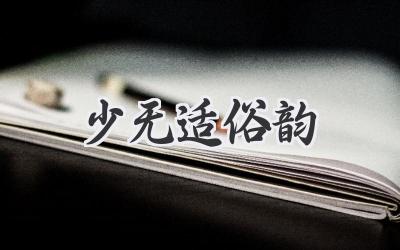 少无适俗韵